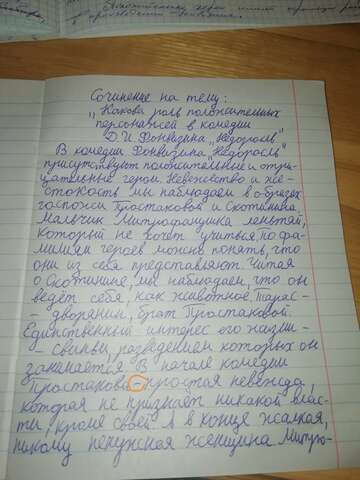 Сочинение на тему:
"Какова роль положительных
персонажей в комедии
Д.И. Фонвизина "Недоросль"
В комедии Фонвизина "Недоросль"
присутствуют положительные и отри-
цательные герои. Невежество и же-
стокость мы наблюдаем в образах
госпожи Простаковой и Скотинина.
Мальчик Митрофанушка лентяй,
который не хочет учиться, по фа-
милиям героев можно понять, что
они из себя представляют. Читая
о Скотинине, мы наблюдаем, что он
ведёт себя, как животное. Тарас-
- дворянин, брат Простаковой.
Единственный интерес его жизни-
- свиньи, разведением которых он
занимается. В начале комедии
Простакова - простая невежда,
которая не признаёт никакой влас-
ти, кроме своей. А в конце жалкая,
никому ненужная женщина. Митро-